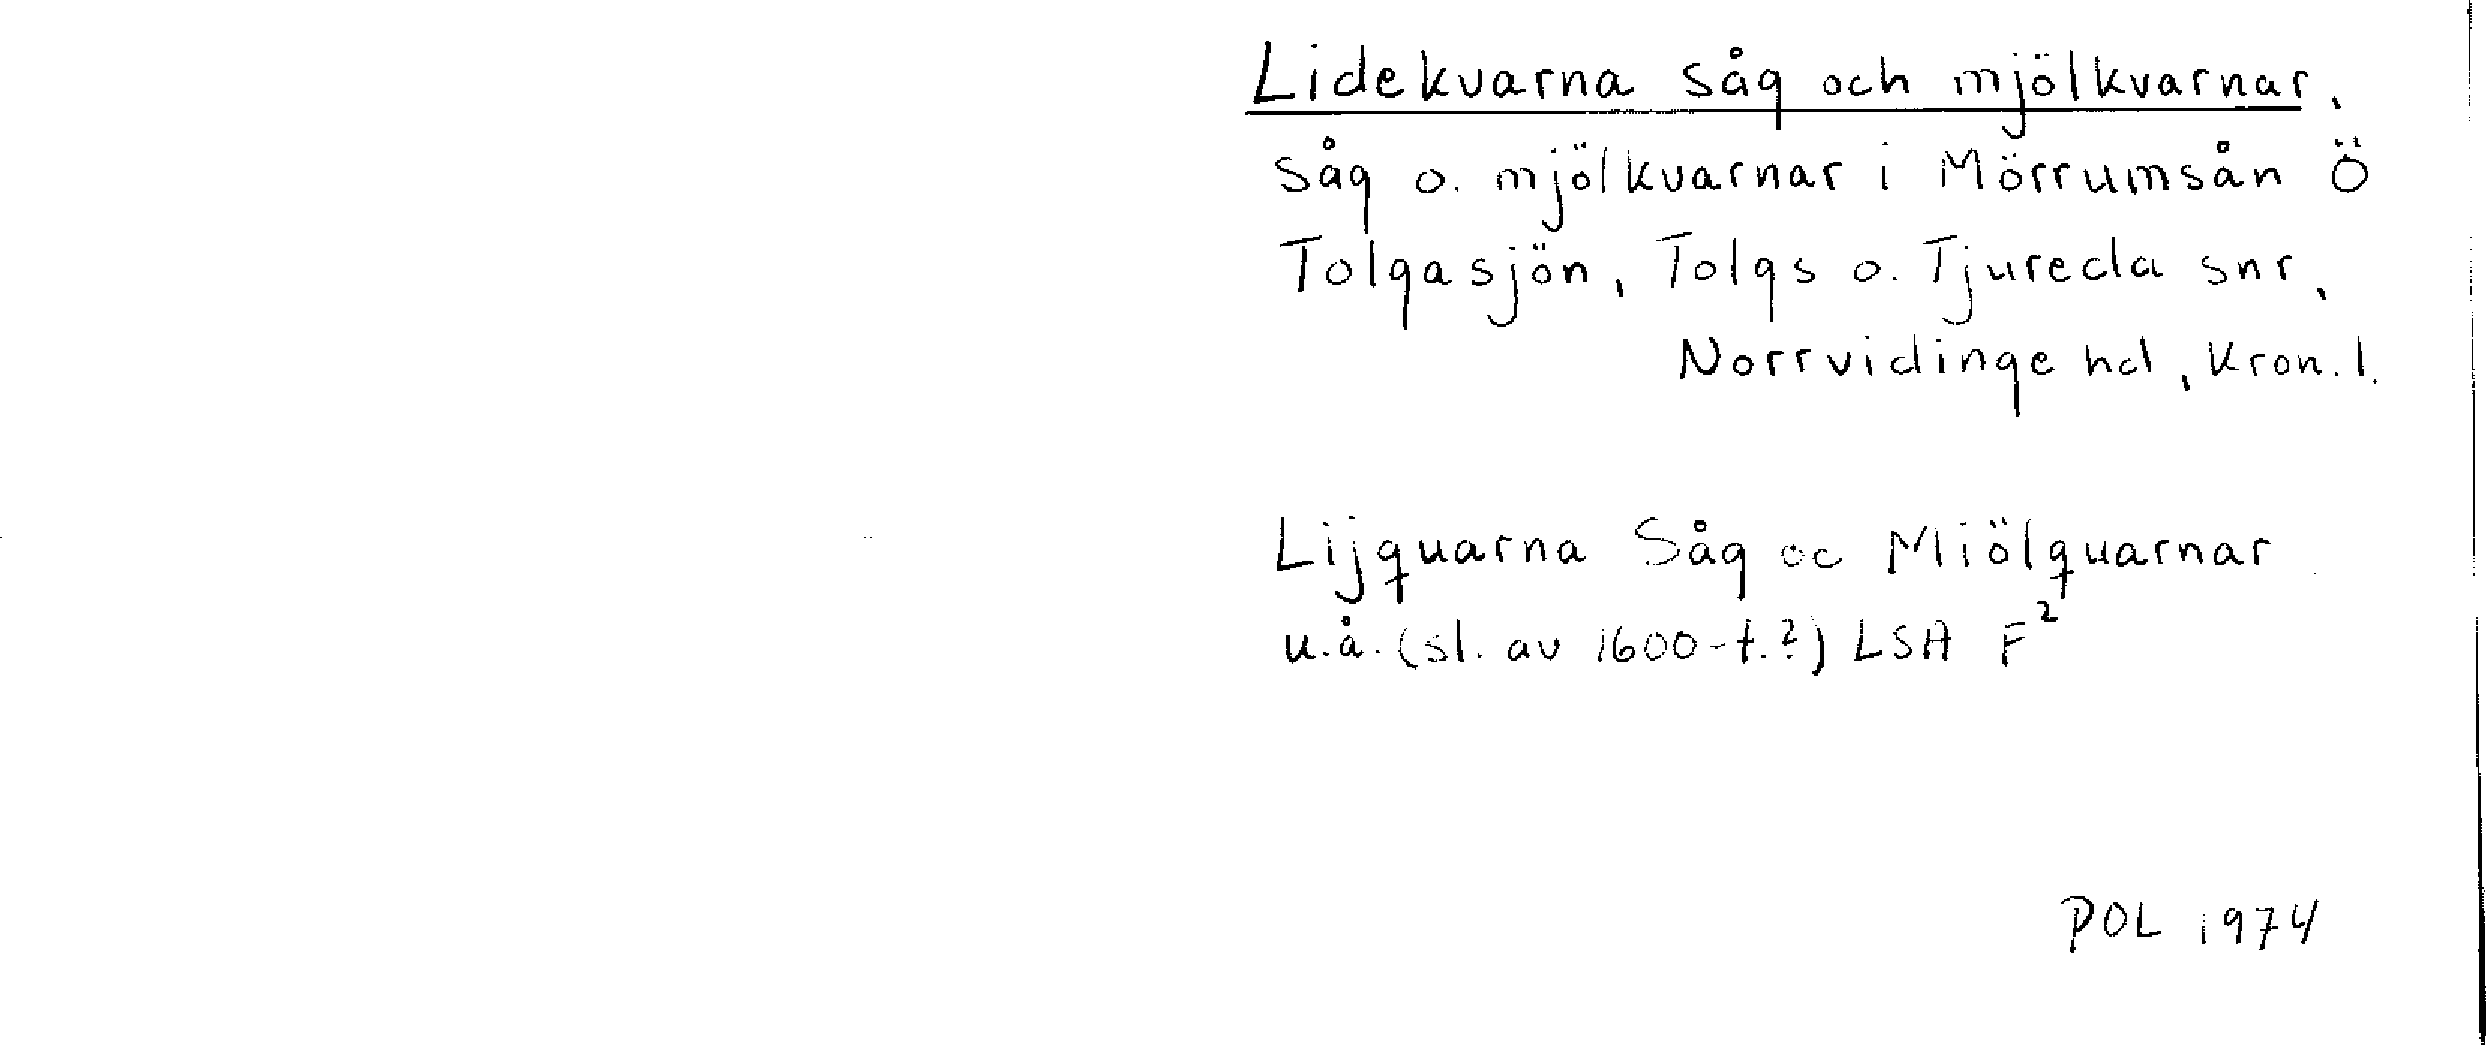 Lidekvarna såg och mjölkvarnar,
Såg o. mjölkvarnar i Mörrumsån Ö
Tolgasjön, Tolgs o. Tjureda snr,
Norrvidinge hd, Kron. l.
Lijquarna Såg oc Miölquarnar
u.å. (sl. av 1600-t.?) LSA F²
POL 1974